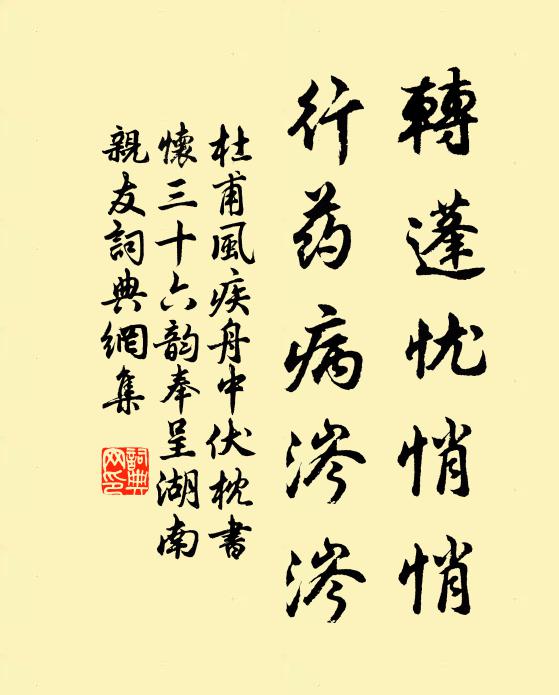 轉蓬忧悄悄
行药病涔涔
杜甫風疾舟中伏枕書
懷三十六韵奉呈湖南
親友詞典網集
詞典
网印